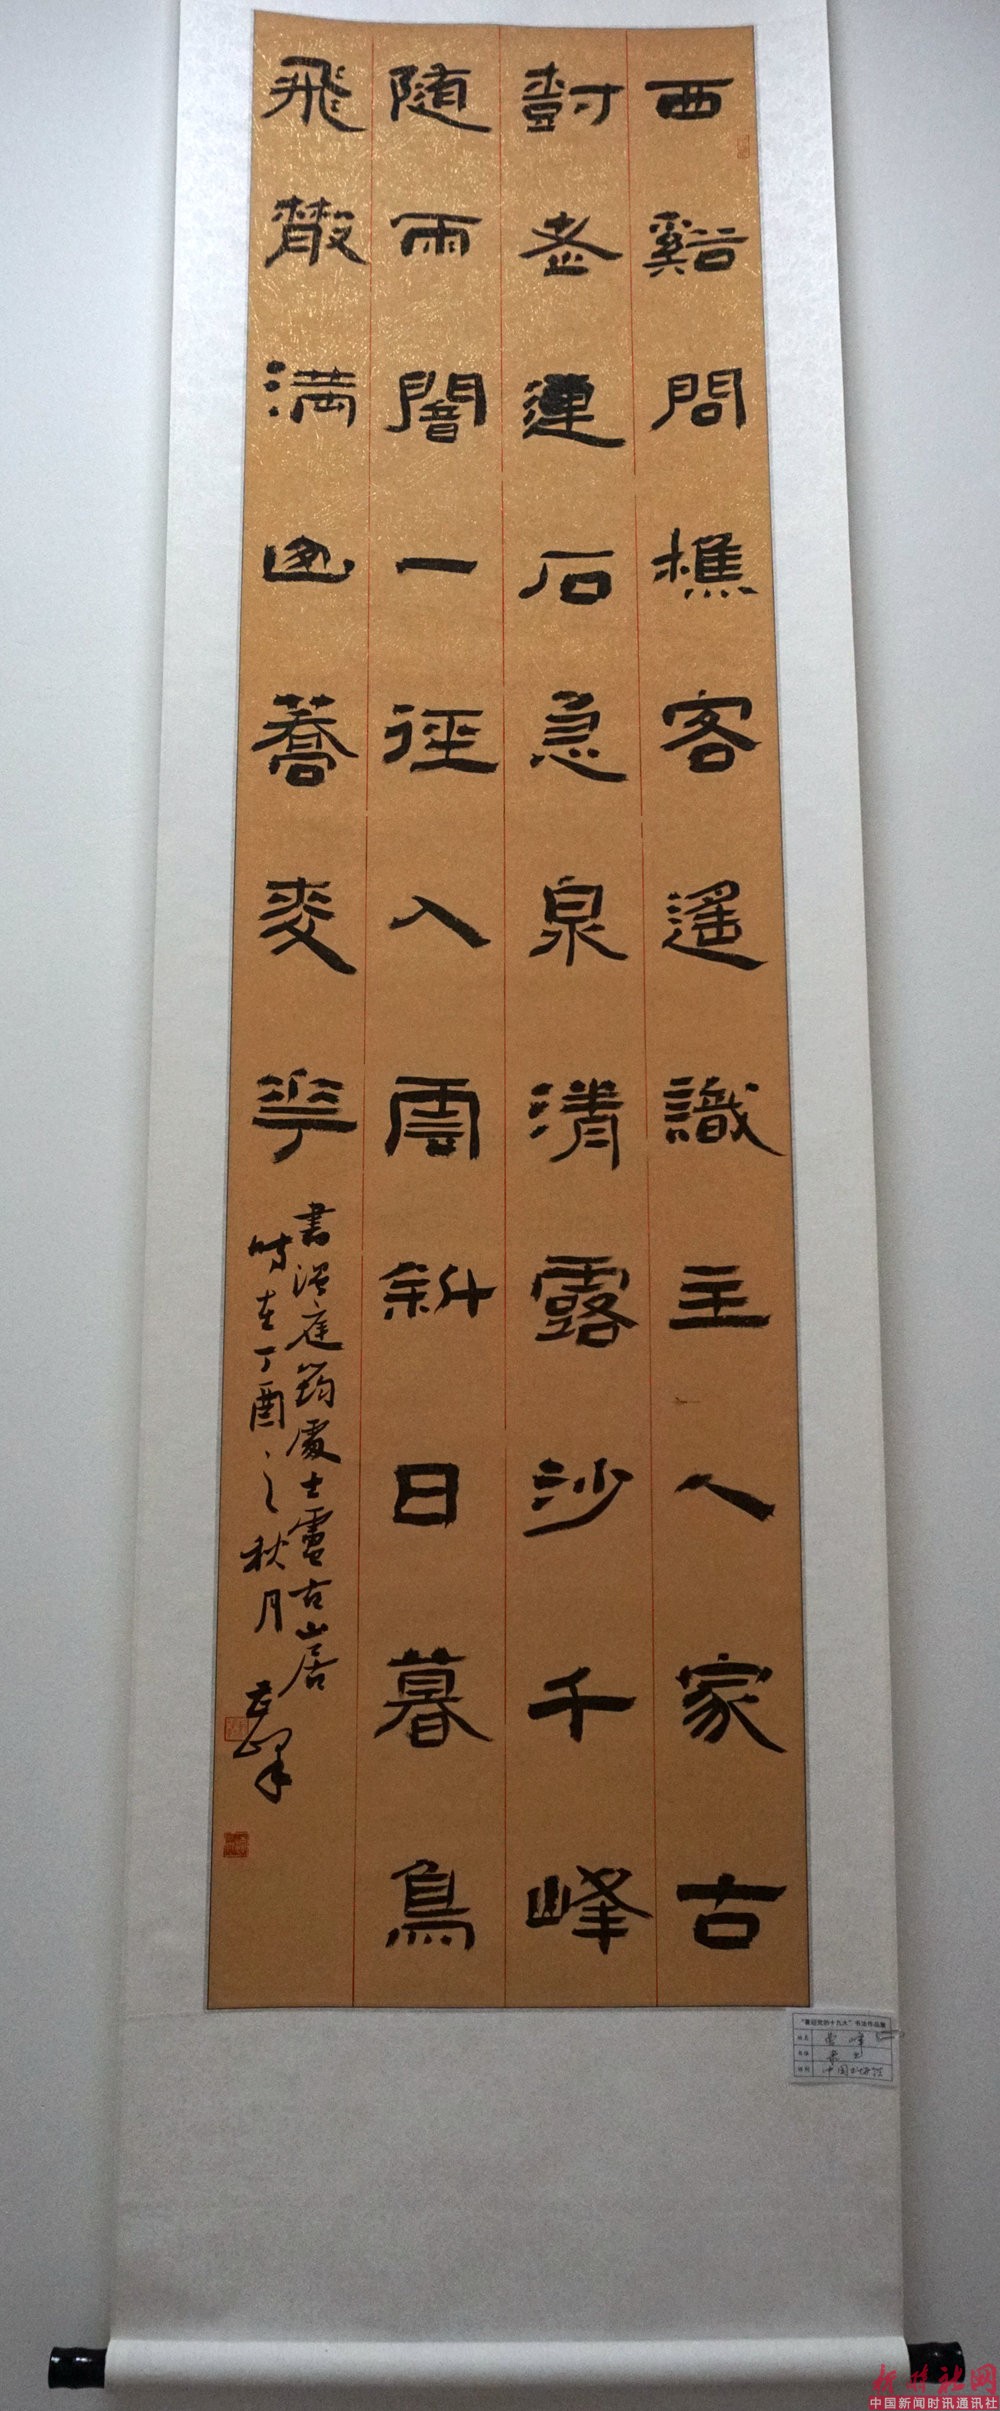 西谿問樵客遙識主人家古
尌老連石急泉清露沙千峰
随雨闇一徑入雲斜日暮鳥
飛散満山蕎麥花
書溫庭筠處士盧古山居
時在丁酉之秋月
"喜迎党的十九大"书法作品展
姓名 峰
中国新闻时讯通讯社